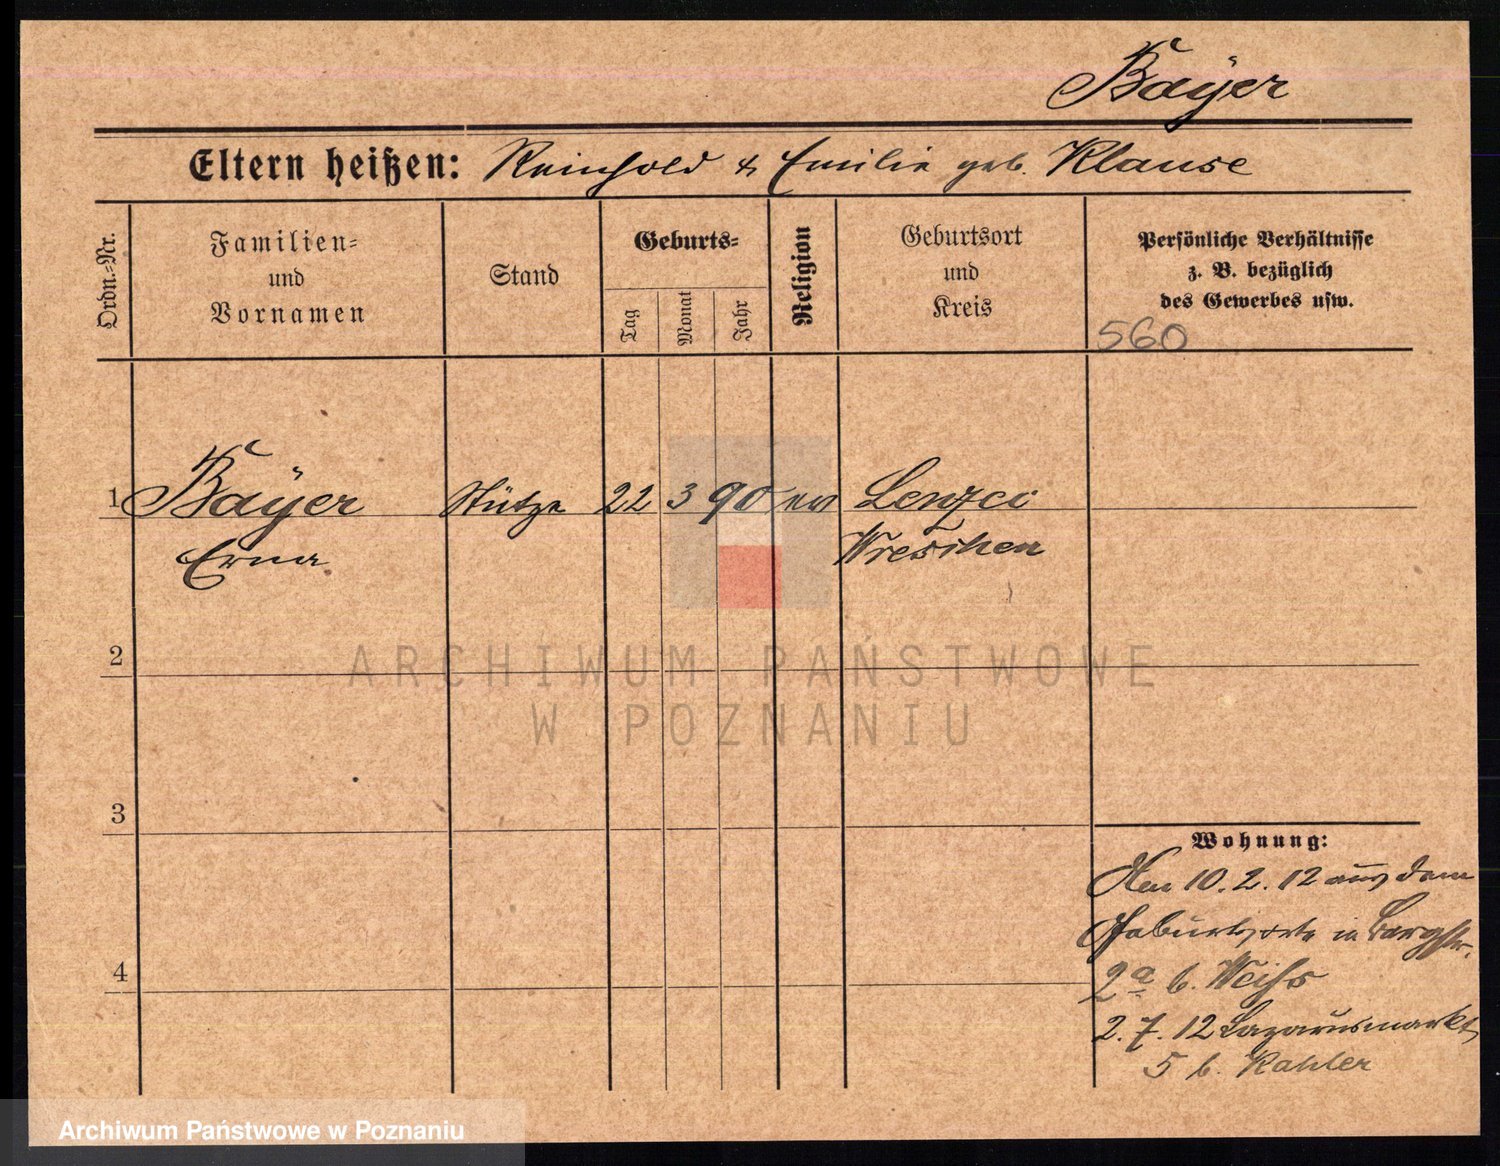 Bayer
Eltern heißen: Reinhold & Emilie geb. Klause
Ordn.-Nr.
Familien- und Vornamen
Stand
Geburts-
Tag
Monat
Jahr
Religion
Geburtsort und Kreis
Persönliche Verhältnisse
z. B. bezüglich
des Gewerbes usw.
560
1 Bayer Stütze 22 3 90 ev Lenzci
Erna Wreschen
2
3
4
Wohnung:
Am 10. 2. 12 aus dem
Geburtsorte in Bergstr.
2a b. Weiss
2. 7. 12 Lazarusmarkt
5 b. Kahler
ARCHIWUM PAŃSTWOWE
W POZNANIU
Archiwum Państwowe w Poznaniu